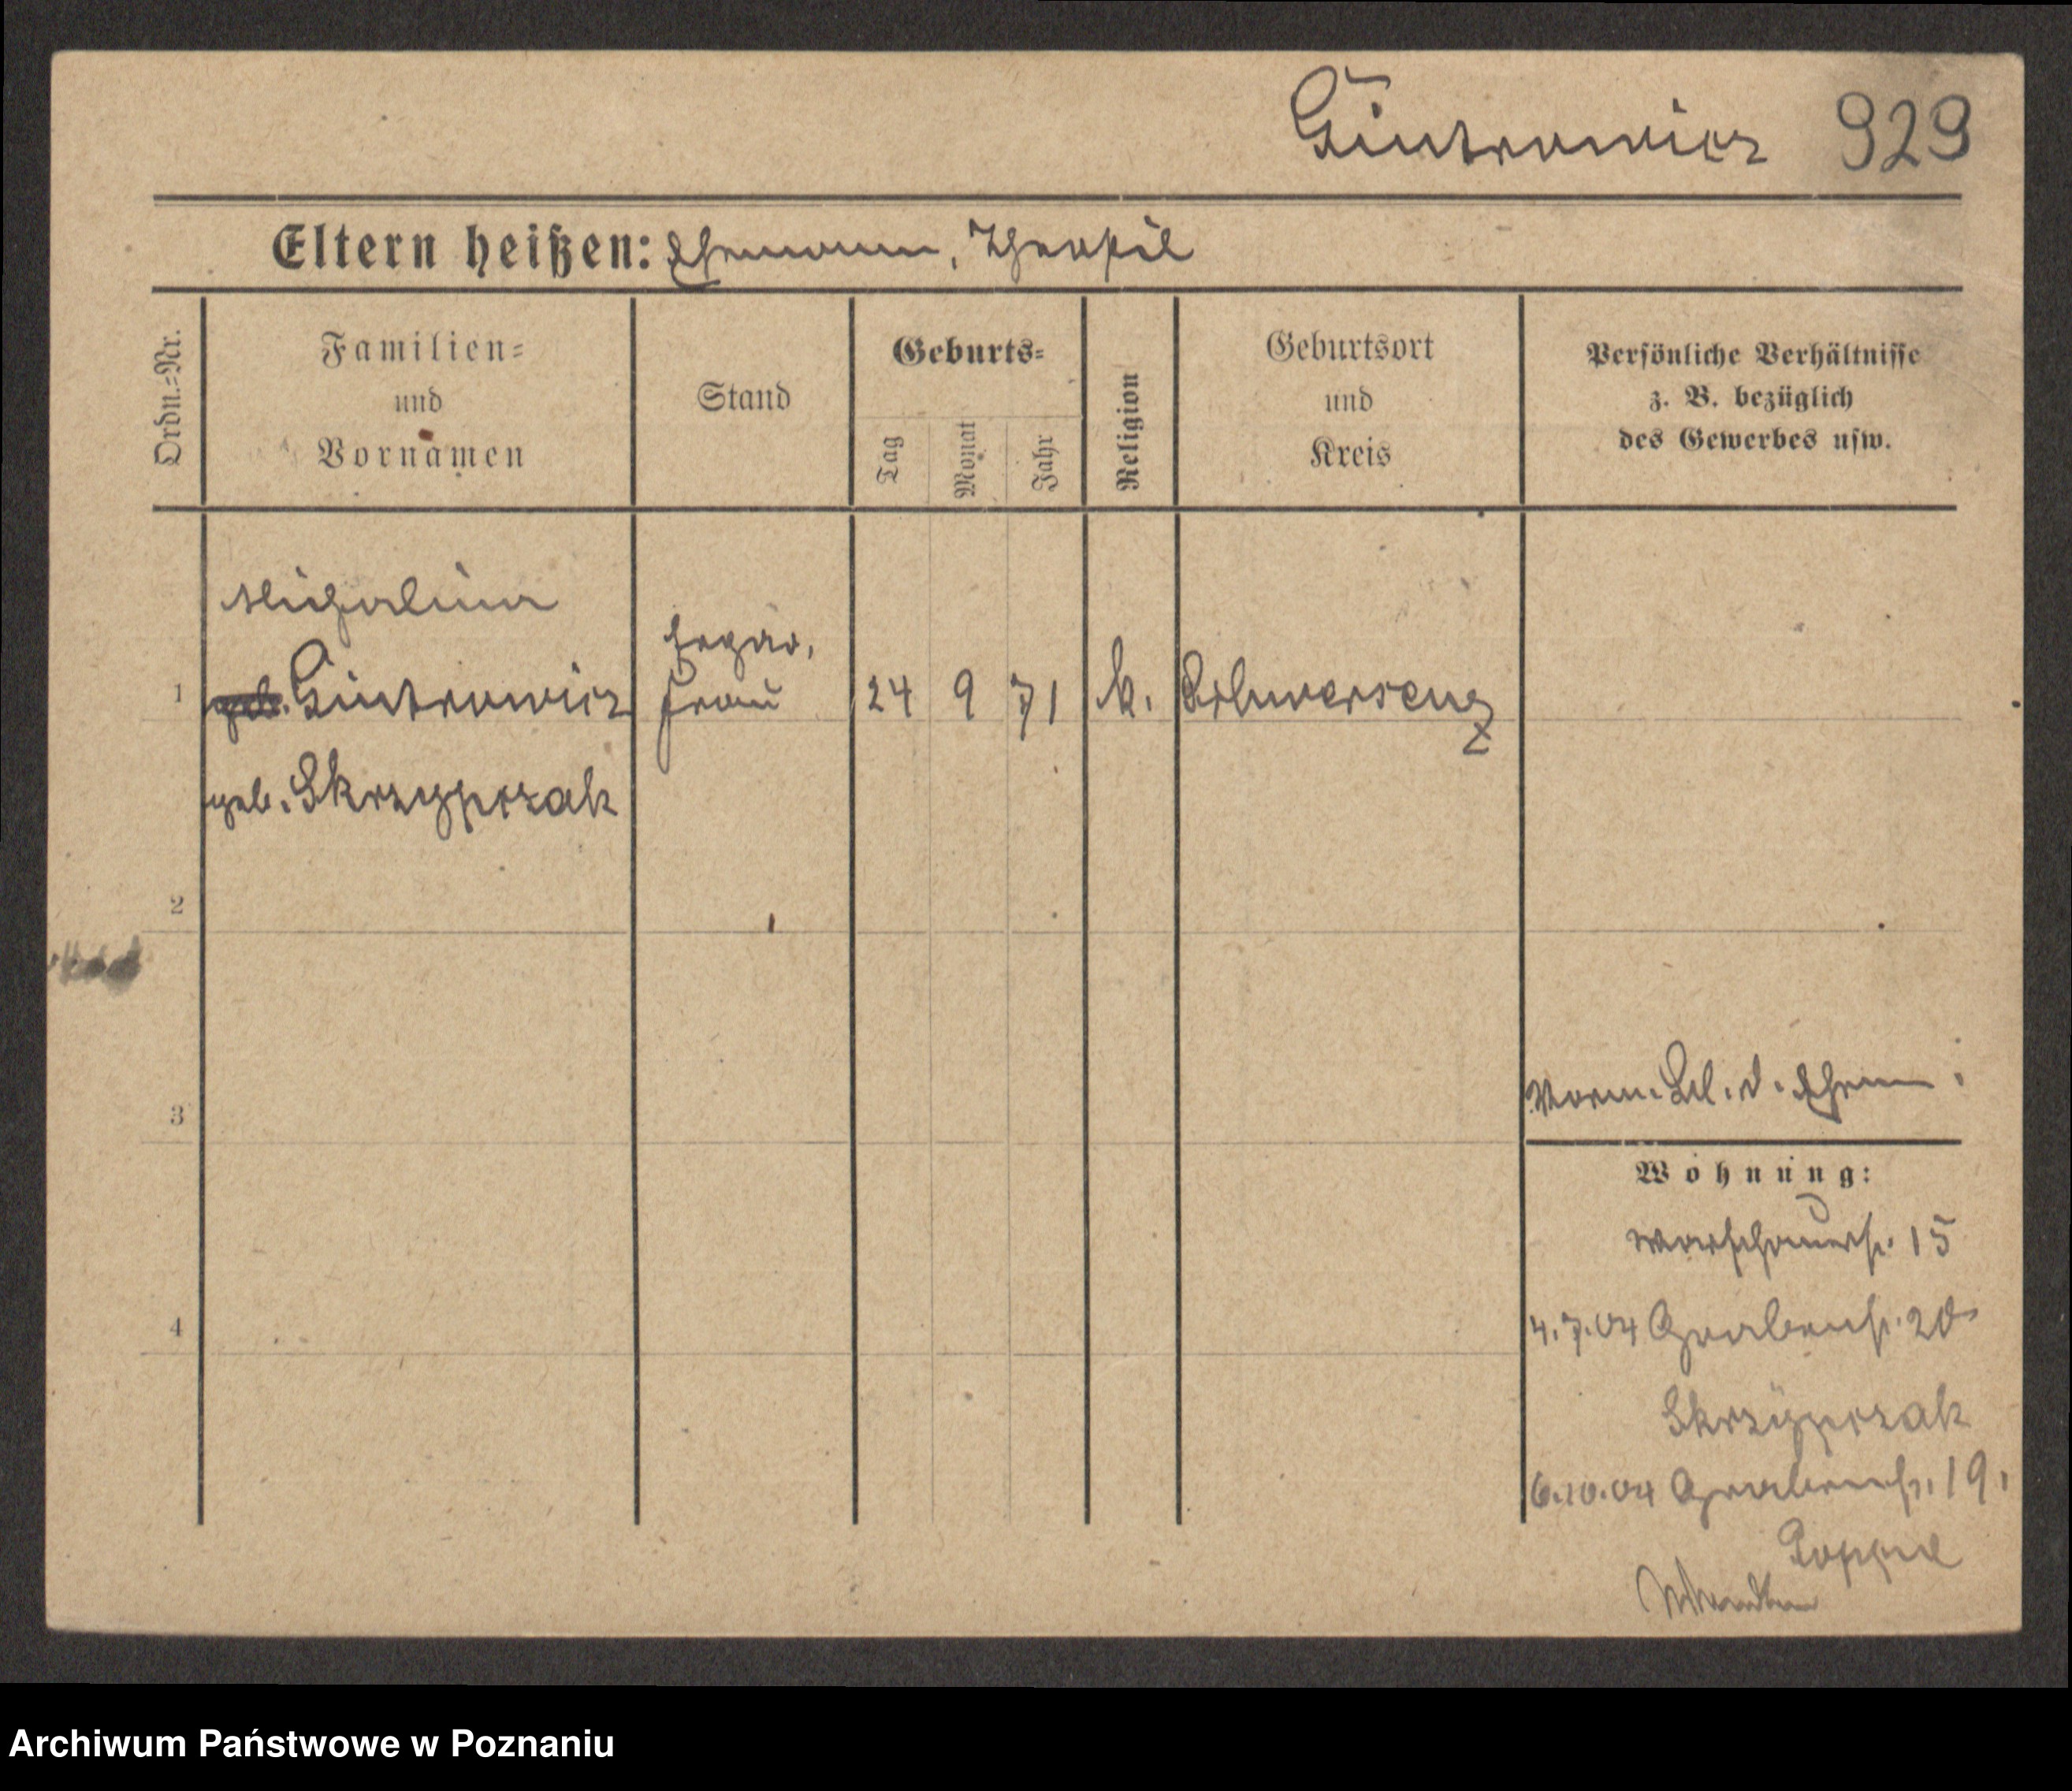 Gintrowicz 929
Eltern heißen: Ehemann, Theophil
Ordn.=Nr.
Familien=
und
Vornamen
Stand
Geburts=
Tag
Monat
Jahr
Religion
Geburtsort
und
Kreis
Persönliche Verhältnisse
z. B. bezüglich
des Gewerbes usw.
Michalina
1 geb. Gintrowicz Frau 24 9 71 k. Schwersenz
geb. Skrzypczak
2
Vorm. Bl. d. Ehem.
3
Wohnung:
Warschauerstr. 15
4 4.7.04 Grabenstr. 20
Skrzypczak
6.10.04 Grabenstr. 19.
Archiwum Państwowe w Poznaniu